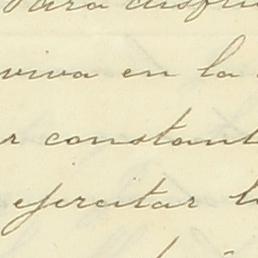 Para disfru
viva en la
r constant
ejercitar l